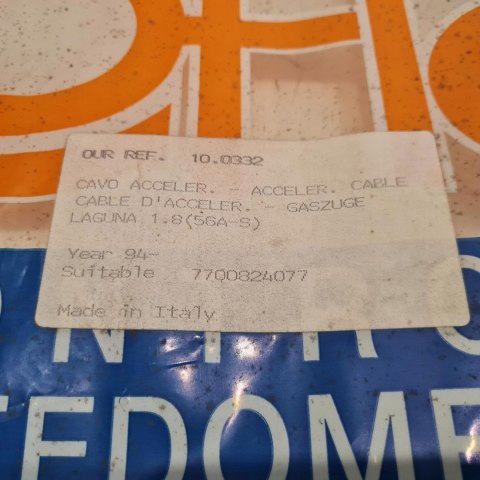 OUR REF. 10.0332
CAVO ACCELER. - ACCELER. CABLE
CABLE D'ACCELER. - GASZUGE
LAGUNA 1.8(56A-S)
Year 94-
Suitable 7700824077
Made in Italy